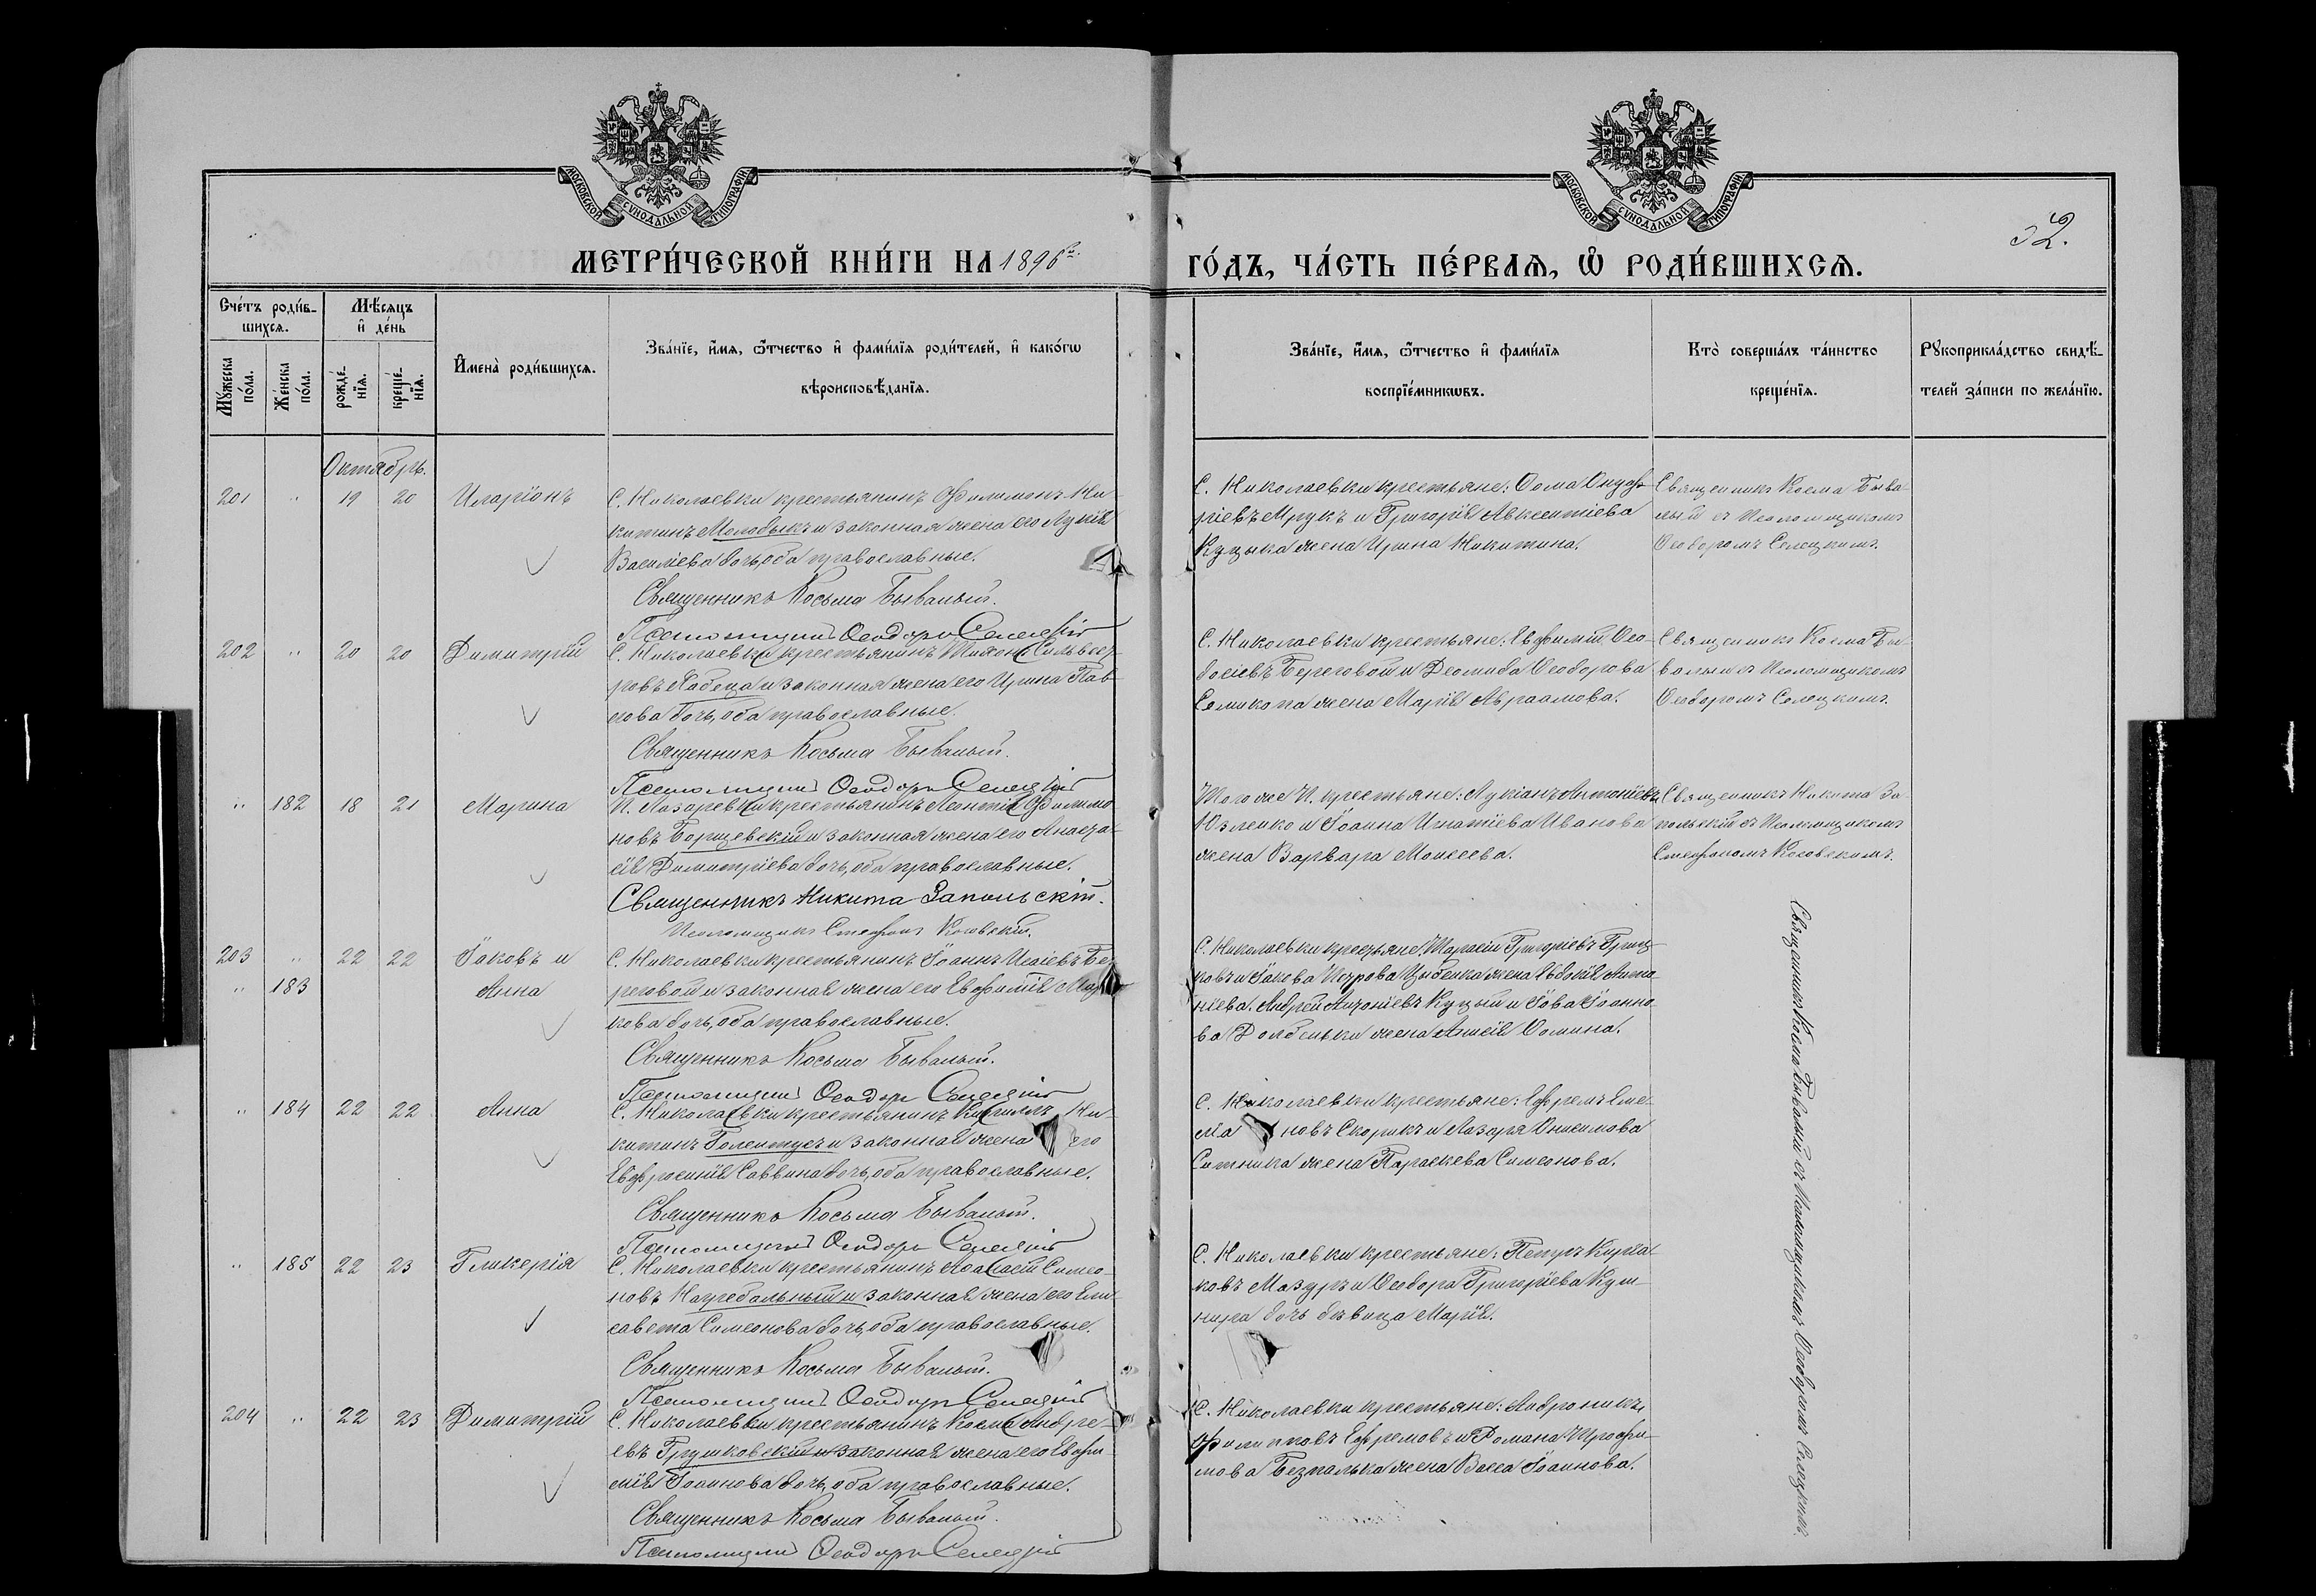 МОСКОВСКОЙ СУНОДАЛЬНОЙ ТИПОГРАФІИ
МОСКОВСКОЙ СУНОДАЛЬНОЙ ТИПОГРАФІИ
32.
МЕТРИ́ЧЕСКОЙ КНИ́ГИ НА 1896й
ГО́ДЪ, ЧА́СТЬ ПЕ́РВАѦ, Ѽ РОДИ́ВШИХСѦ.
Сче́тъ роди́в-
шихсѧ.
Мѣ́сѧцъ
и҆ де́нь
Мꙋ́жеска по́ла.
Же́нска по́ла.
рожде́-
нїѧ.
креще́-
нїѧ.
И҆мена̀ роди́вшихсѧ.
Зва́нїе, и҆́мѧ, ѻ҆́тчество и҆ фами́лїѧ роди́телей, и҆ како́гѡ
вѣроисповѣ́данїѧ.
Зва́нїе, и҆́мѧ, ѻ҆́тчество и҆ фами́лїѧ
воспрїе́мникѡвъ.
Кто̀ соверша́лъ та́инство
креще́нїѧ.
Рꙋкоприкла́дство свидѣ́-
телей за́писи по жела́нїю.
Октябрь.
201 " 19 20 Иларіонъ
С. Николаевки крестьянинъ Филимонъ Ни-
китинъ Молодыкъ и законная жена его Лукія
Василіева дочь, оба православные.
Священникъ Косьма Бывалый.
Псаломщикъ Ѳеодоръ Селецкій
С. Николаевки крестьяне: Ѳома Онуф-
ріевъ Мрукъ и Григорія Авксентіева
Куцыка жена Ирина Никитина.
Священникъ Косма Быва-
лый съ Псаломщикомъ
Ѳеодоромъ Селецкимъ.
202 " 20 20 Димитрій
С. Николаевки крестьянинъ Тихонъ Сильвест-
ровъ и законная жена его Ирина Пав-
лова дочь, оба православные.
Священникъ Косьма Бывалый.
Псаломщикъ Ѳеодоръ Селецкій
С. Николаевки крестьяне: Евфимій Ѳео-
досіевъ Береговой и Діомида Ѳеодорова
Семикопа жена Марія Авраамова.
Священникъ Косма Бы-
валый съ Псаломщикомъ
Ѳеодоромъ Селецкимъ.
" 182 18 21 Марина
П. Лазаревки крестьянинъ Леонтій Филимо-
новъ Борщевскій и законная жена его Анаста-
сія Димитріева дочь, оба православные.
Священникъ Никита Запольскій.
Псаломщикъ Стефанъ Коговскій.
Того же П. крестьяне: Лукіанъ Антоніевъ
Юзленко и Іоанна Игнатіева Иванова
жена Варвара Моисеева.
Священникъ Никита За-
польскій съ Псаломщикомъ
Стефаномъ Коговскимъ.
203 " 22 22 Іаковъ и
" 183 Анна
С. Николаевки крестьянинъ Іоаннъ Исаіевъ Бе-
реговой и законная жена его Евфимія
кова дочь, оба православные.
Священникъ Косьма Бывалый.
Псаломщикъ Ѳеодоръ Селецкій
С. Николаевки крестьяне: Тарасій Григоріевъ Гриц-
ковъ и Іакова Петрова Цыбенка жена Евдокія Анто-
ніева. Андрей Антоніевъ Куцый и Іова Іоанно-
ва Долбеньки жена Анисія Ѳомина.
" 184 22 22 Анна
С. Николаевки крестьянинъ Кириллъ Ни-
китинъ Голентусъ и законная жена его
Евфросинія Саввина дочь, оба православные.
Священникъ Косьма Бывалый.
Псаломщикъ Ѳеодоръ Селецкій
С. Николаевки крестьяне: Ефремъ Еме-
ла новъ Скорикъ и Лазаря Онисимова
Ситника жена Параскева Симеонова.
" 185 22 23 Гликерія
С. Николаевки крестьянинъ Аѳанасій Симео-
новъ Нагребальный и законная жена его Ели-
савета Симеонова дочь, оба православные.
Священникъ Косьма Бывалый.
Псаломщикъ Ѳеодоръ Селецкій
С. Николаевки крестьяне: Петръ Киріа-
ковъ Мазуръ и Ѳеодора Григоріева Куш-
нира дочь дѣвица Марія.
204 " 22 23 Димитрій
С. Николаевки крестьянинъ Косма Андре-
евъ Грушковскій и законная жена его Евфи-
мія Іоаннова дочь, оба православные.
Священникъ Косьма Бывалый.
Псаломщикъ Ѳеодоръ Селецкій
С. Николаевки крестьяне: Андроникъ
Филипповъ Ефремовъ и Романа Трофи-
мова Безпалька жена Васса Іоаннова.
Священникъ Косма Бывалый съ Псаломщикомъ Ѳеодоромъ Селецкимъ.